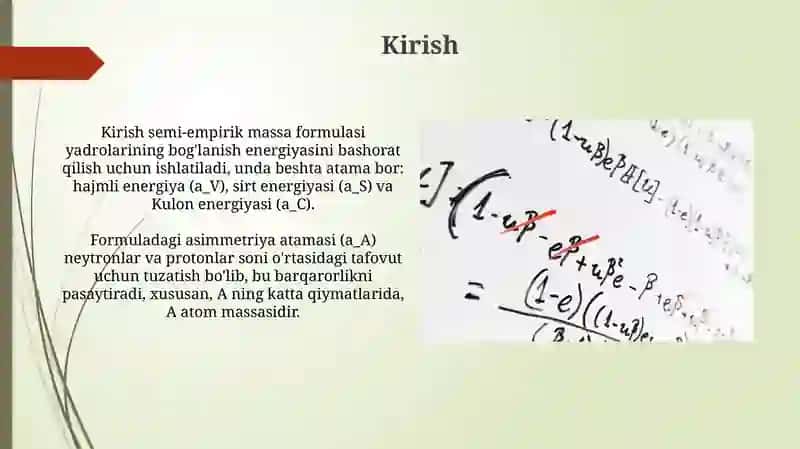 Kirish
Kirish semi-empirik massa formulasi
yadrolarining bog'lanish energiyasini bashorat
qilish uchun ishlatiladi, unda beshta atama bor:
hajmli energiya (a_V), sirt energiyasi (a_S) va
Kulon energiyasi (a_C).
Formuladagi asimmetriya atamasi (a_A)
neytronlar va protonlar soni o'rtasidagi tafovut
uchun tuzatish bo'lib, bu barqarorlikni
pasaytiradi, xususan, A ning katta qiymatlarida,
A atom massasidir.
(1-uβ)eβ
(1-uβ-eβ+uβ²e-β+eβ
=
(1-e)((1-uβ)